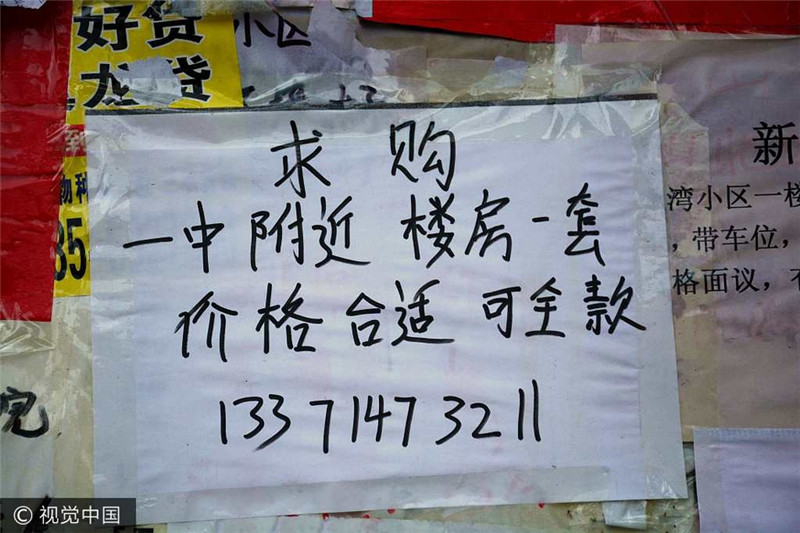 好贷
龙贷
小区
求购
一中附近 楼房一套
价格合适 可全款
13371473211
新
湾小区一楼
，带车位，
格面议，不
物种
85
完
© 视觉中国